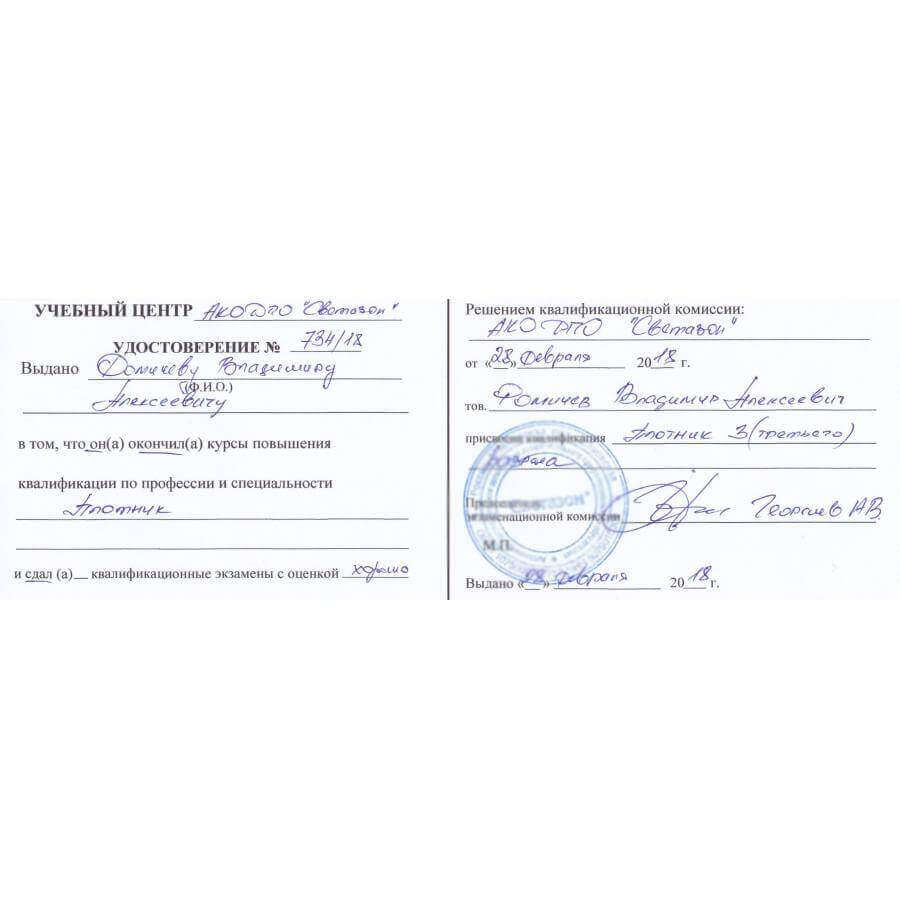 УЧЕБНЫЙ ЦЕНТР АКОДПО "Светазон"
УДОСТОВЕРЕНИЕ № 734/18
Выдано Фомичеву Владимиру
(Ф.И.О.)
Алексеевичу
в том, что он(а) окончил(а) курсы повышения
квалификации по профессии и специальности
Плотник
и сдал (а) квалификационные экзамены с оценкой хорошо
Решением квалификационной комиссии:
АКОДПО "Светазон"
от «28» февраля 2018 г.
тов. Фомичев Владимир Алексеевич
присвоена квалификация плотник 3 (третьего)
разряда
Председатель
экзаменационной комиссии Георгиев А.В.
М.П.
Выдано «28» февраля 2018 г.